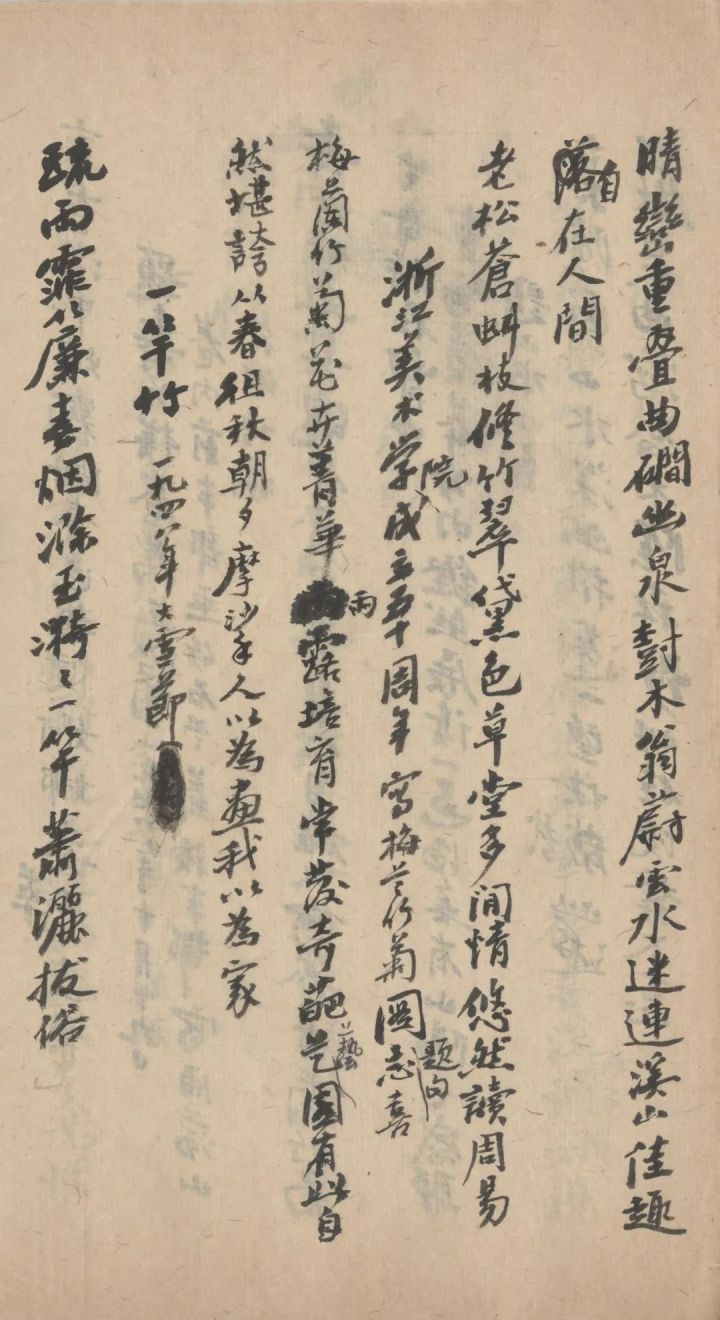 晴巒重叠曲磵幽泉樹木蓊蔚雲水迷連溪山佳趣
自落在人間
老松蒼虬枝修竹翠黛色草堂多閒情悠然讀周易
浙江美术学院成立五十周年寫梅兰竹菊圖志喜題句
梅蘭竹菊花卉菁華雨露培育常發奇葩芸藝園有此自
然堪誇從春徂秋朝夕摩挲人以為畫我以為家
一竿竹 一九四八年大雪節
疏雨霏從簾春烟滌玉漪漪一竿蕭灑拔俗